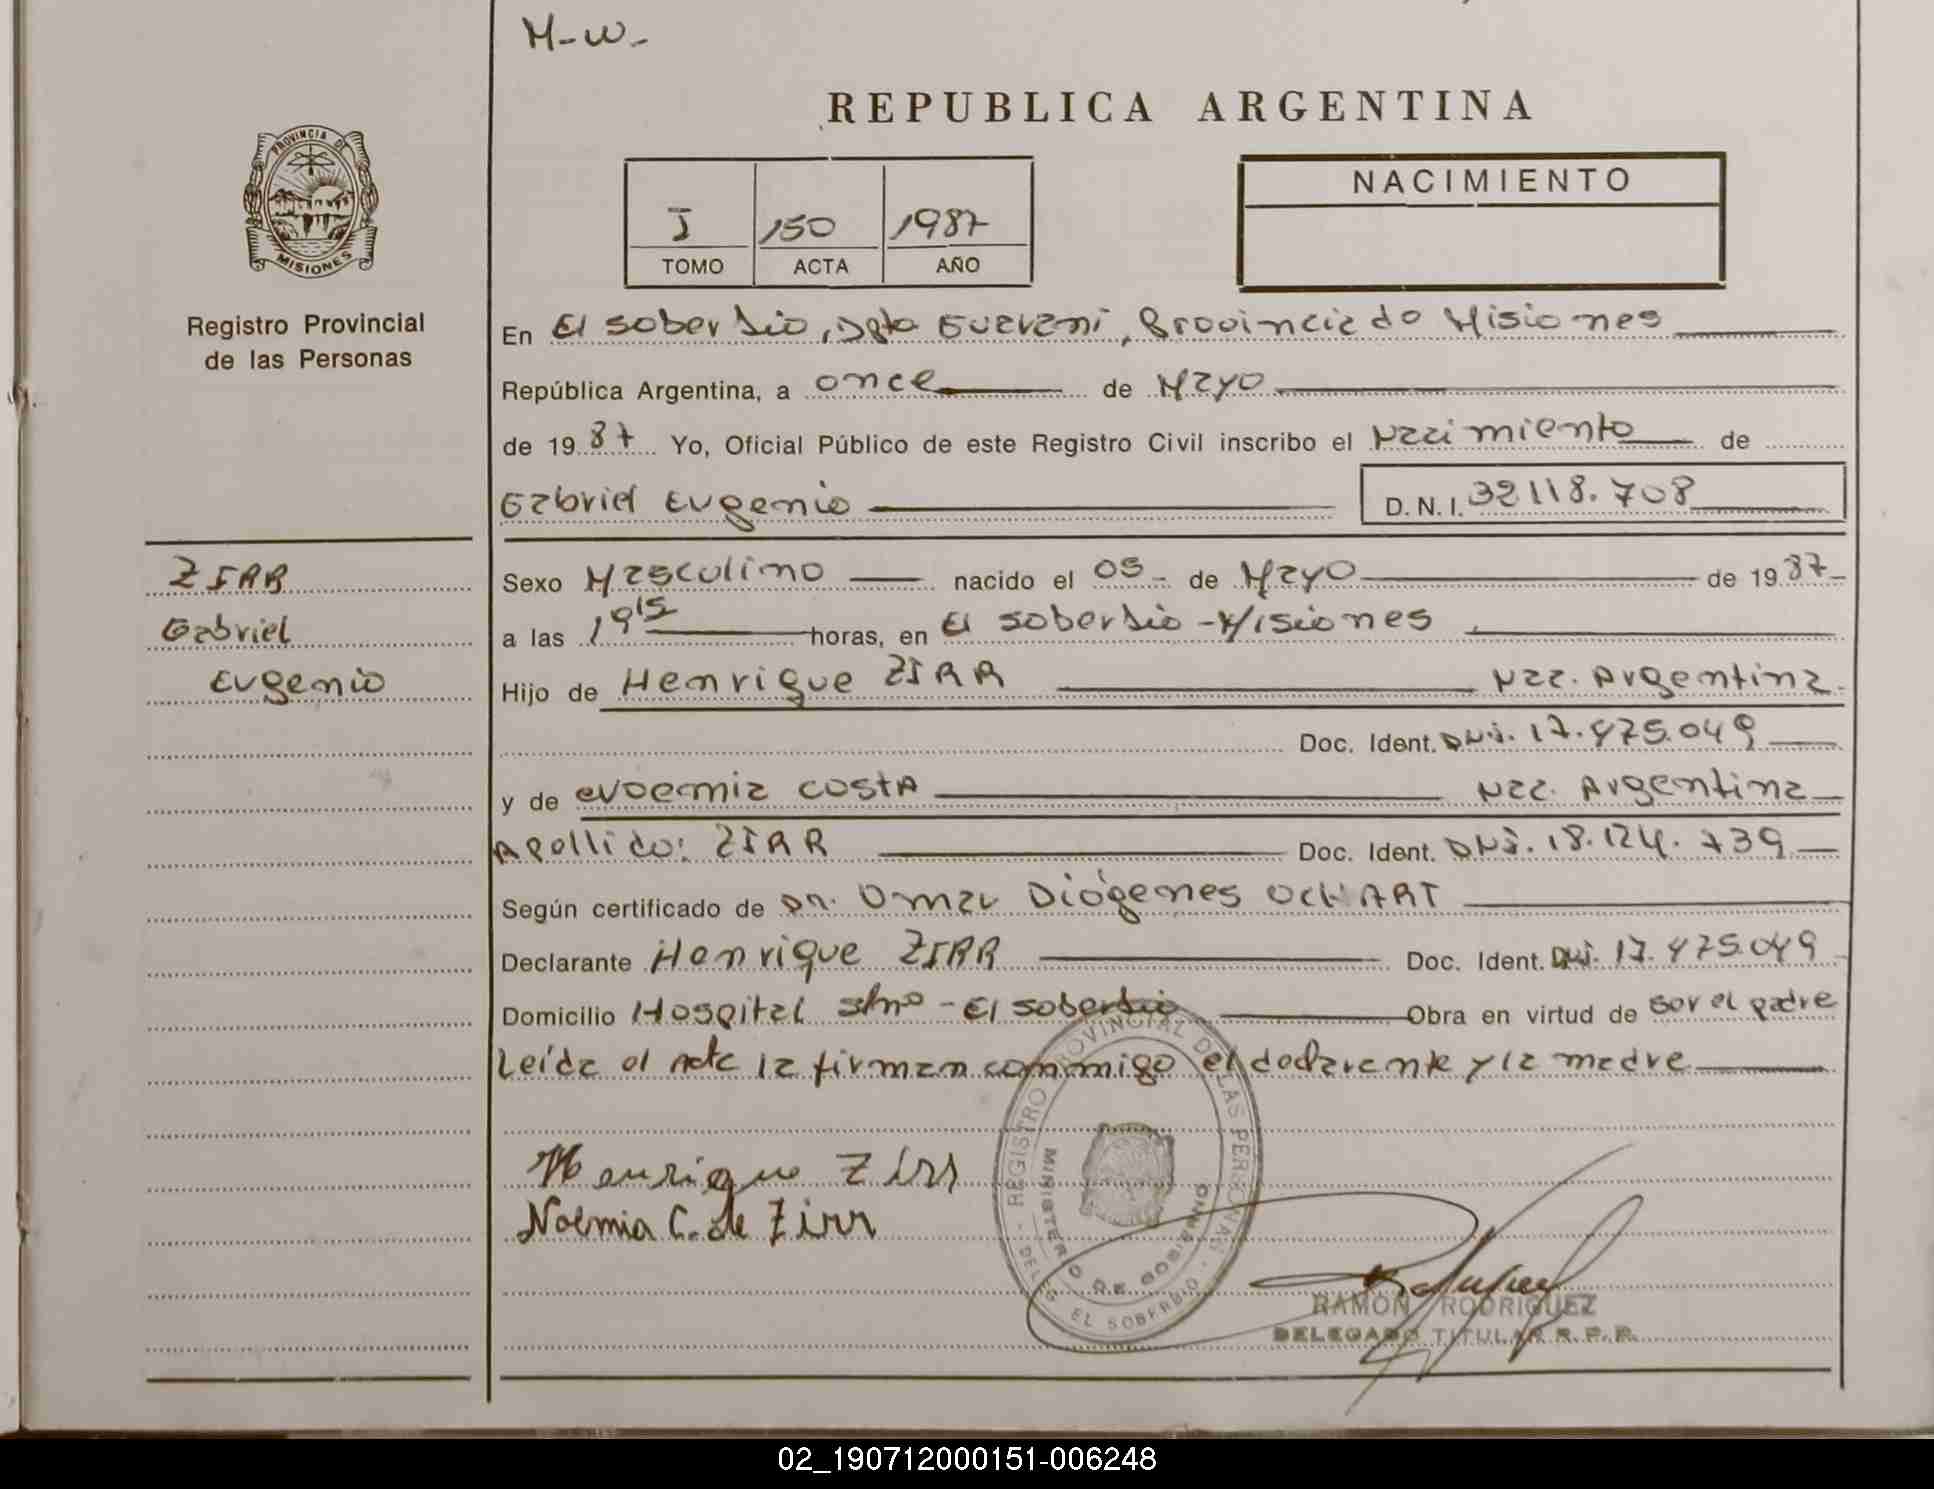 M-W-
REPUBLICA ARGENTINA
PROVINCIA DE
MISIONES
Registro Provincial
de las Personas
I 150 1987
TOMO ACTA AÑO
NACIMIENTO
En El Soberbio, Dpto Guarani, Provincia de Misiones
República Argentina, a once de Mayo
de 1987 Yo, Oficial Público de este Registro Civil inscribo el Nacimiento de
Gabriel Eugenio D.N.I. 32118.708
ZIRR
Gabriel
Eugenio
Sexo Masculino nacido el 05- de Mayo de 1987-
a las 19 15 horas, en El Soberbio - Misiones
Hijo de Henrique ZIRR Nac. Argentina.
Doc. Ident. DNI. 17.475.049
y de costA Nac. Argentina
Apellido: ZIRR Doc. Ident. DNI. 18.124.739
Según certificado de DR. Omar Diógenes OCHART
Declarante Henrique ZIRR Doc. Ident. DNI. 17.475.049
Domicilio Hospital s/nº - El Soberbio Obra en virtud de ser el padre
Leída el Acta la firman conmigo el declarante y la madre
Henrique Zirr
Noemia C. de Zirr
REGISTRO PROVINCIAL DE LAS PERSONAS
MINISTERIO DE GOBIERNO
DELEG. EL SOBERBIO
RAMÓN RODRIGUEZ
DELEGADO TITULAR R.P.P.
02_190712000151-006248